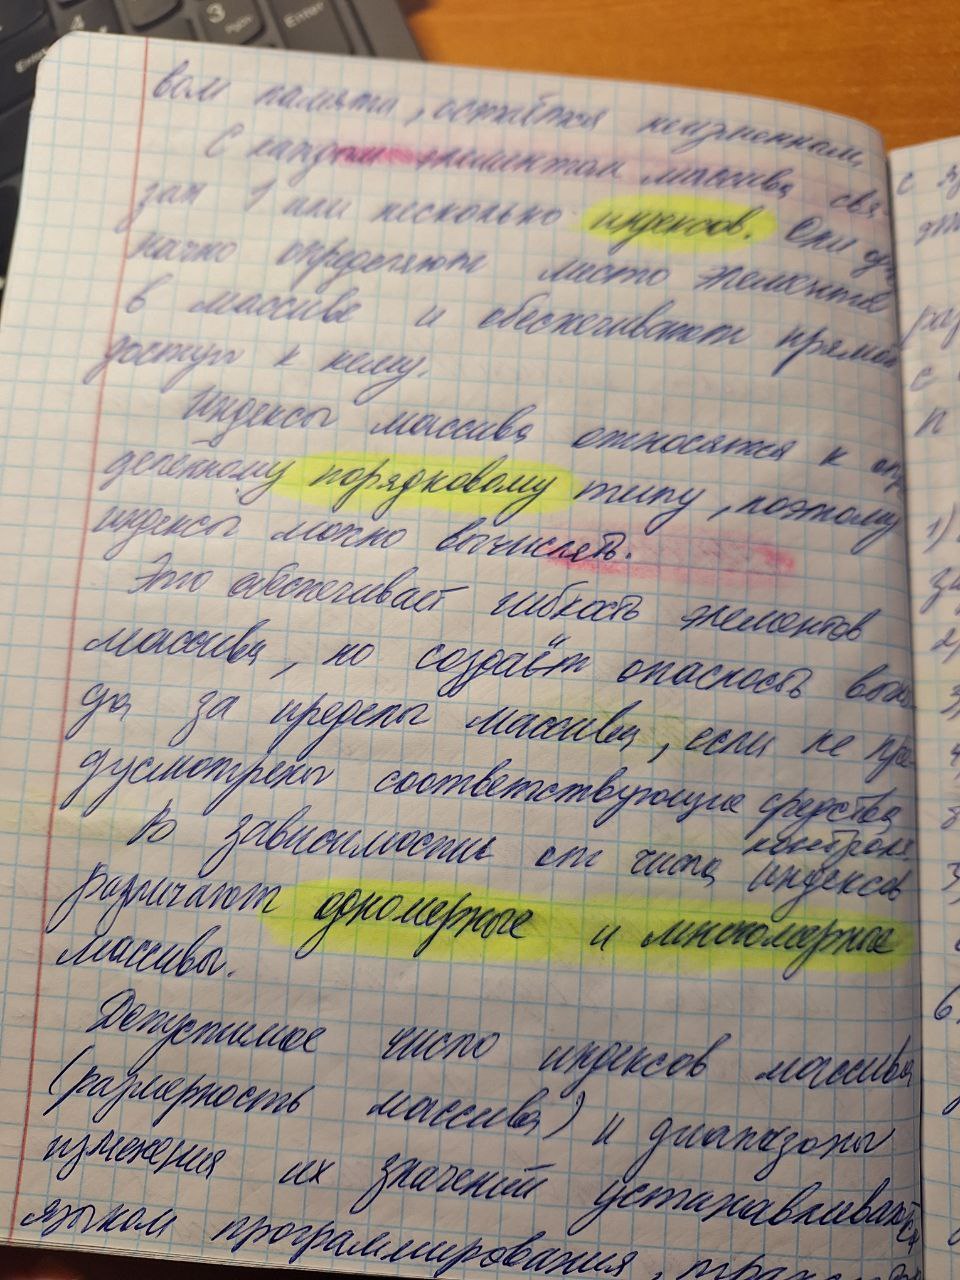 вом памяти, остаётся неизменном.
С каждом элементом массива свя-
зан 1 или несколько индексов. Они од
начно определяют место элемента
в массиве и обеспечивают прямой
доступ к нему.
Индексы массива относятся к опр
деленному порядковому типу, поэтому
индексы можно вычислять.
Это обеспечивает гибкость элементов
массива, но создаёт опасность выхо-
да за пределы массива, если не пре-
дусмотрены соответствующие средства
контроля.
В зависимости от числа индексов
различают одномерные и многомерные
массивы.
Допустимое число индексов массива
(размерность массива) и диапазоны
изменения их значений устанавливаются
языком программирования,